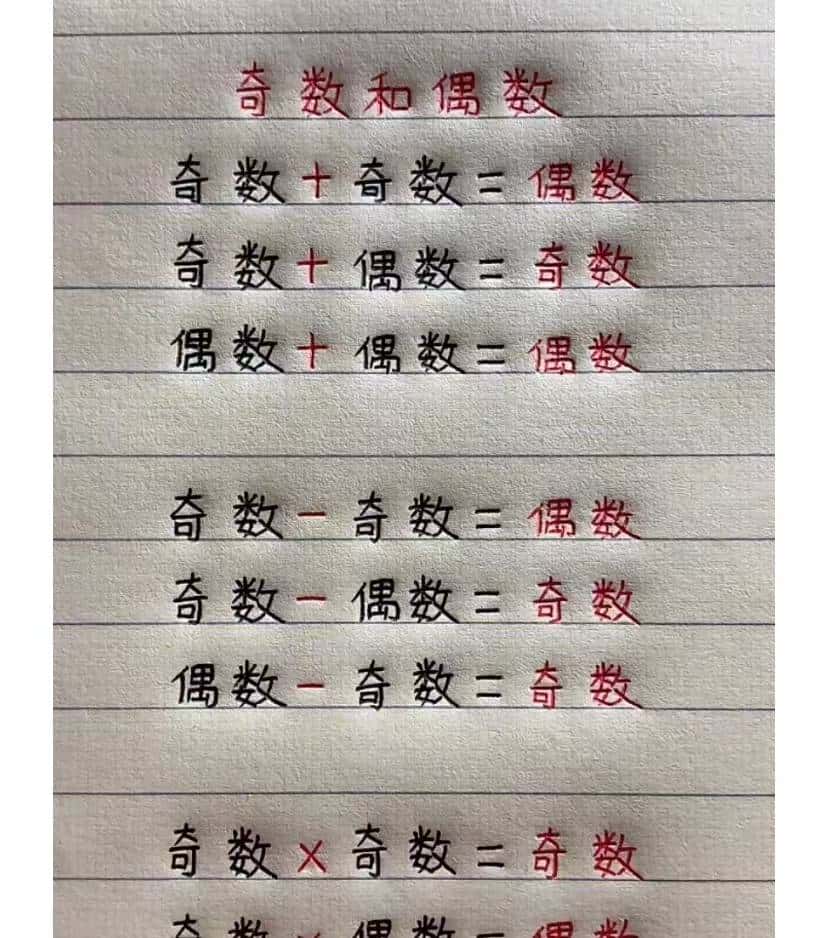 奇数和偶数
奇数+奇数=偶数
奇数+偶数=奇数
偶数+偶数=偶数
奇数-奇数=偶数
奇数-偶数=奇数
偶数-奇数=奇数
奇数×奇数=奇数
奇数×偶数=偶数